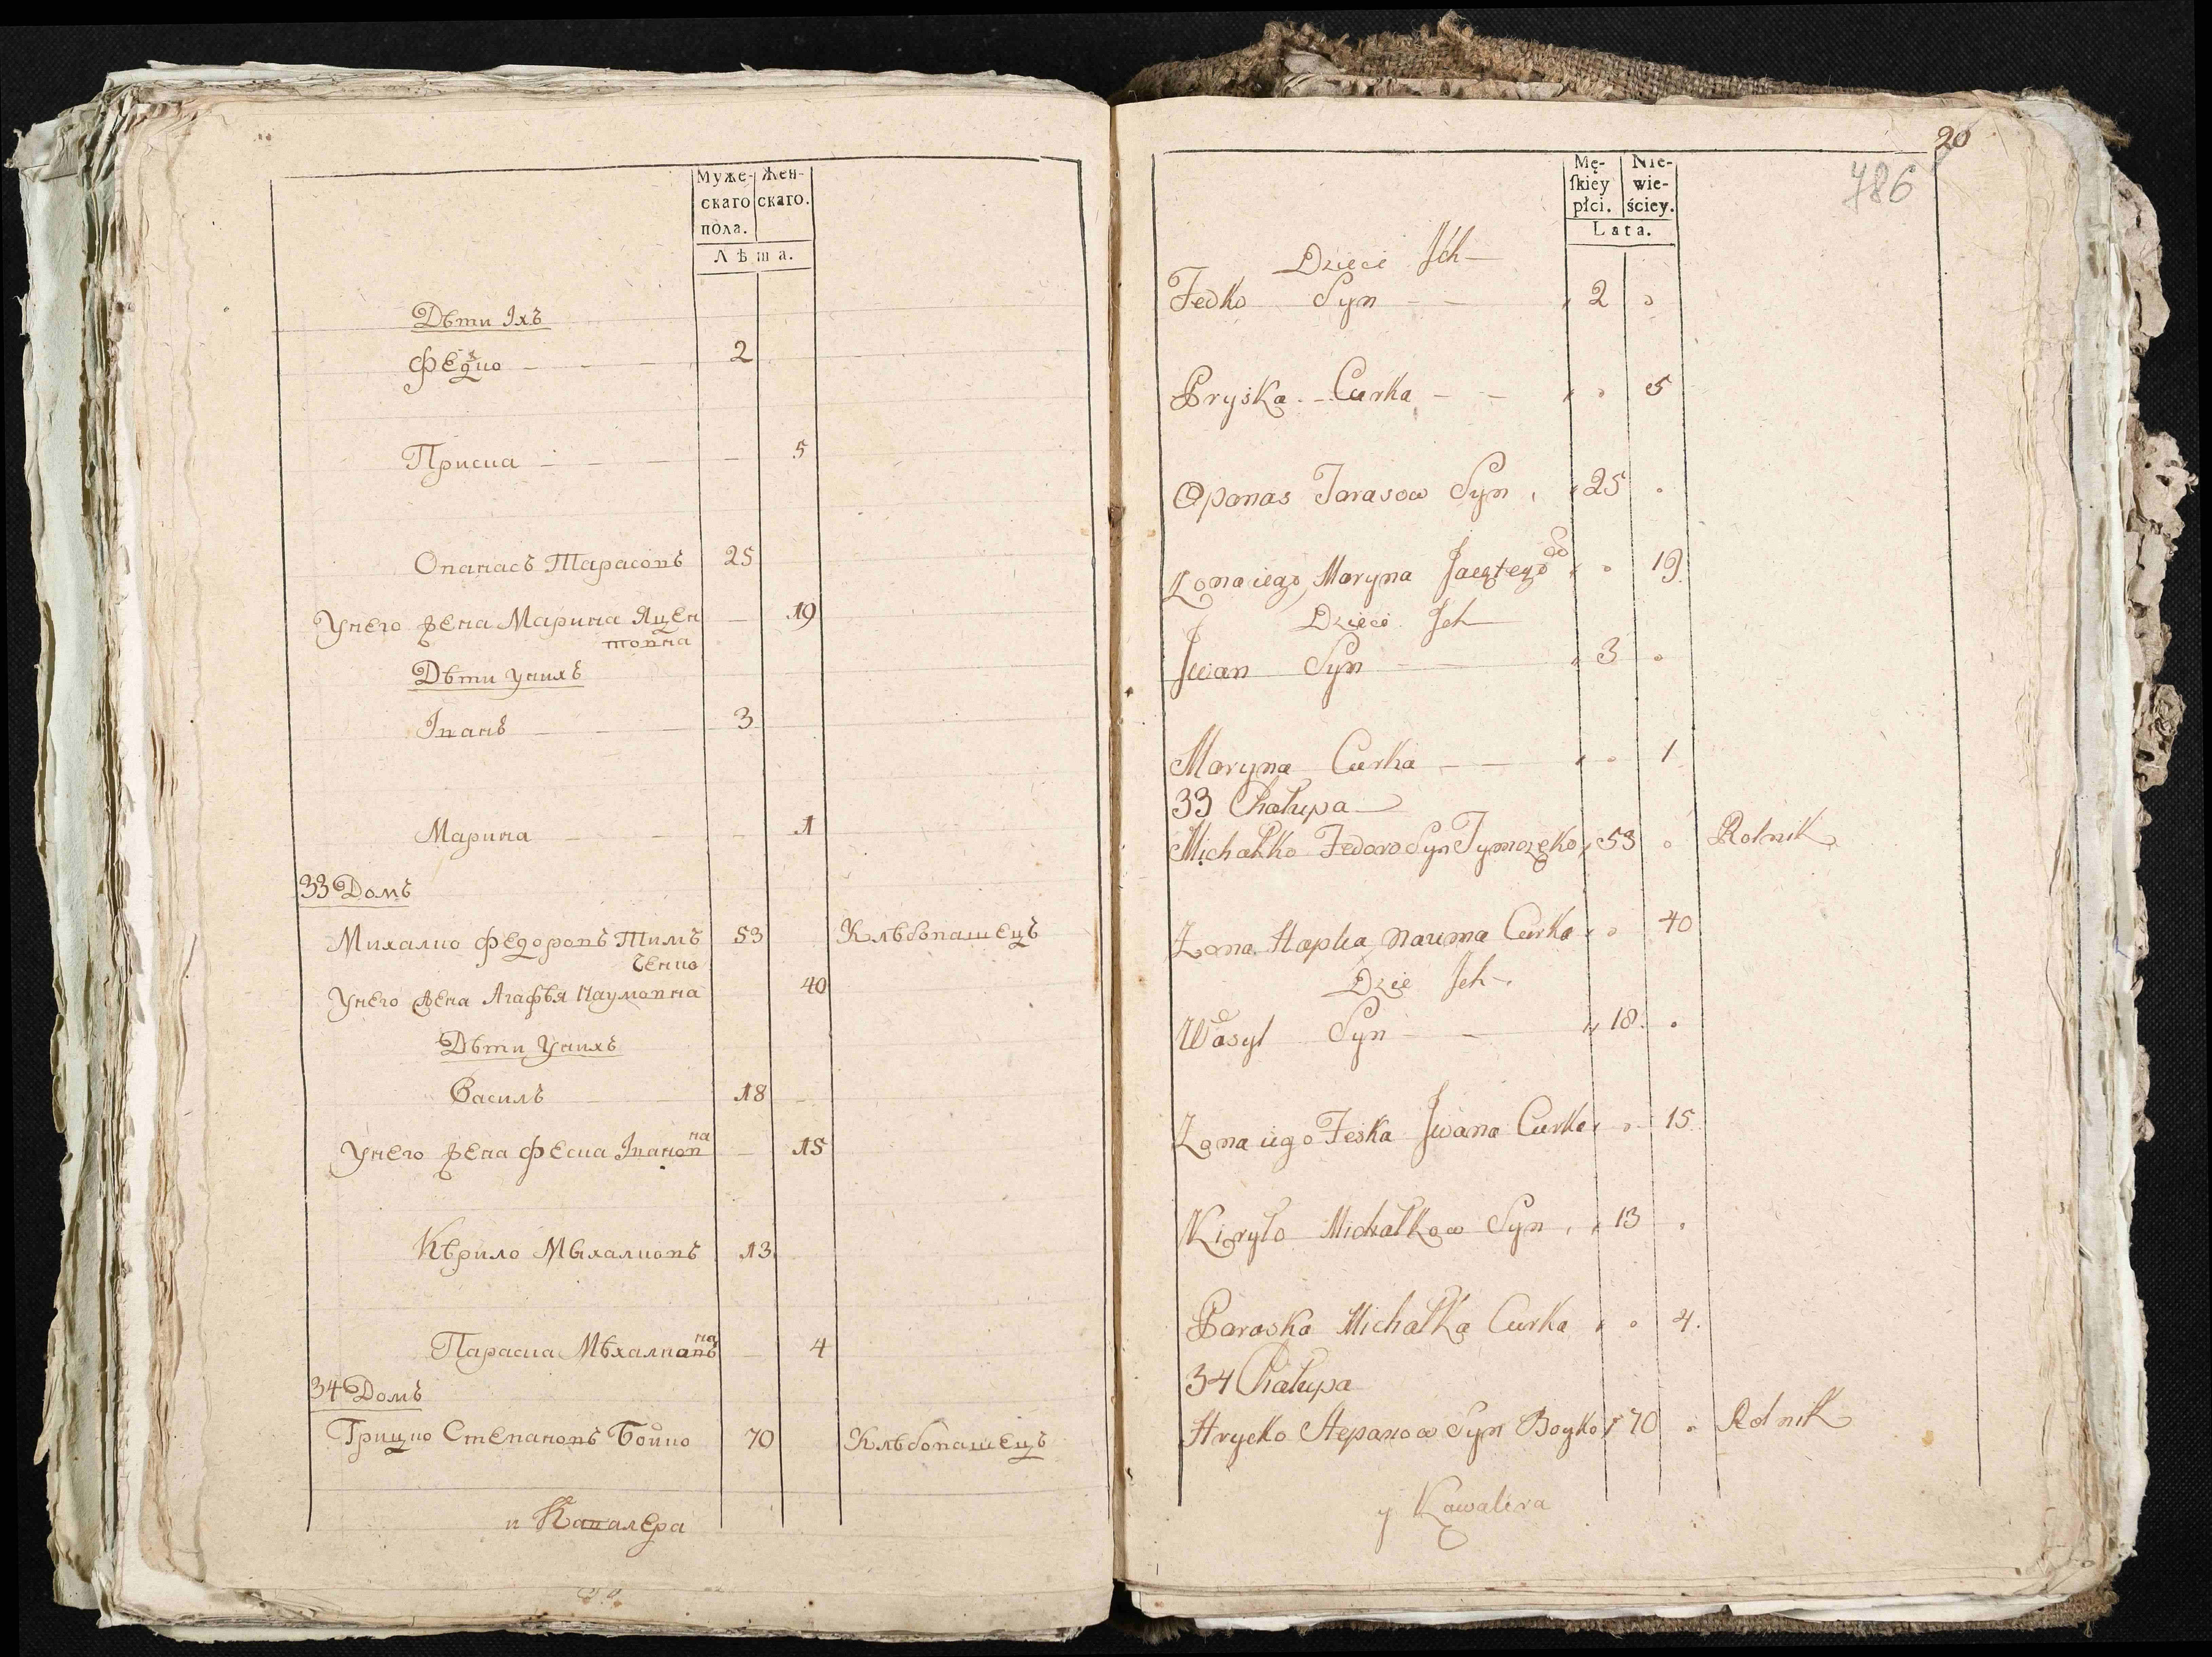 Муже- Жен-
скаго скаго.
пола.
Лѣта.
Дѣти Іхъ
Федко 2
Приска 5
Опанасъ Тарасовъ 25
Унего жена Марина Яцен 19
товна
Дѣти Унихъ
Іванъ 3
Марина 1
33 Домъ
Михалко Федоровъ Тимъ 53 Хлѣбопашецъ
ченко
Унего жена Агафѣя Наумовна 40
Дѣти Унихъ
Василъ 18
Унего жена Феска Івановна 15
Кѣрило Мѣхалковъ 13
Параска Мѣхалковна 4
34 Домъ
Грицко Степановъ Бойко 70 Хлѣбопашецъ
и Кавалера
20
786
Mę- Nie-
ſkiey wie-
płci. ściey.
Lata.
Dzieci Jch
Fedko Syn 2
Pryska Curka 5
Opanas Tarasow Syn 25
Zona iego Maryna 19
Dzieci Jch
Jwan Syn 3
Maryna Curka 1
33 Chałupa
Michałko Fedorow Syn Tymczeko 53 Rolnik
Zona Hapka Nauma Curka 40
Dzie Jch
Wasyl Syn 18
Zona iego Feska Jwana Curka 15
Kiryło Michałkow Syn 13
Paraska Michałka Curka 4.
34 Chałupa
Hrycko Stepanow Syn Boyko 70 Rolnik
y Kawalera